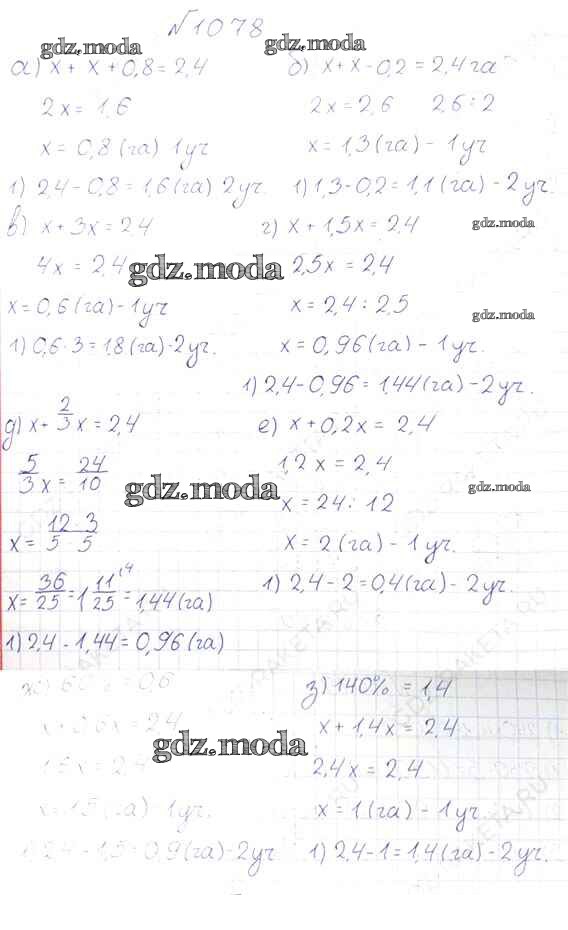 №1078
gdz.moda gdz.moda
а) x + x + 0,8 = 2,4
2x = 1,6
x = 0,8 (га) 1уч
1) 2,4 - 0,8 = 1,6 (га) 2уч.
б) x + x - 0,2 = 2,4 га
2x = 2,6 2,6 : 2
x = 1,3 (га) - 1уч
1) 1,3 - 0,2 = 1,1 (га) - 2уч.
в) x + 3x = 2,4
4x = 2,4
gdz.moda
x = 0,6 (га) - 1уч
1) 0,6 · 3 = 1,8 (га) - 2уч.
г) x + 1,5x = 2,4
gdz.moda
2,5x = 2,4
x = 2,4 : 2,5
gdz.moda
x = 0,96 (га) - 1уч.
1) 2,4 - 0,96 = 1,44 (га) - 2уч.
д) x + 2/3 x = 2,4
5/3 x = 24/10
gdz.moda
x = 12 · 3 / 5 · 5
x = 36/25 = 1 11/25 = 1,44 (га)
1) 2,4 - 1,44 = 0,96 (га)
е) x + 0,2x = 2,4
1,2x = 2,4
gdz.moda
x = 24 : 12
x = 2 (га) - 1уч.
1) 2,4 - 2 = 0,4 (га) - 2уч.
ж) 60% = 0,6
x + 0,6x = 2,4
gdz.moda
1,6x = 2,4
x = 1,5 (га) - 1уч.
1) 2,4 - 1,5 = 0,9 (га) - 2уч
з) 140% = 1,4
x + 1,4x = 2,4
2,4x = 2,4
x = 1 (га) - 1уч
1) 2,4 - 1 = 1,4 (га) - 2уч.